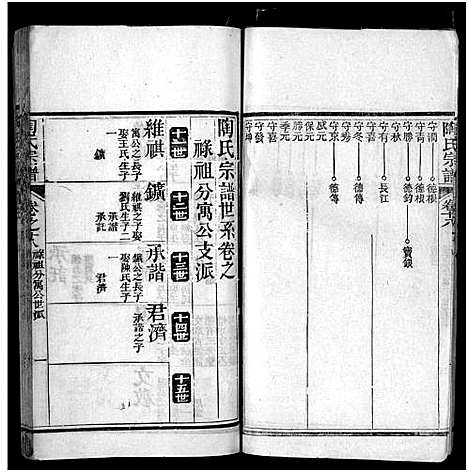 陶氏宗譜
守潤
德根
守青
德根
守勝
德釗
寶鎖
守宏
守有
長江
守冬
德傅
守秀
守京
德傳
咸元
保元
季元
守喜
守發
守坤
陶氏宗譜世系卷之
祿祖分寓公支派
十一世
十二世
十三世
十四世
十五世
維祺
寓公之長子
娶王氏生子
一
鑛
鑛
維祺之子娶
劉氏生子二
承譜
承託
承譜
鑛公之長子
娶陳氏生子
一
君濟
君濟
承譜之子
陶氏宗譜
祿祖分寓公世派
一